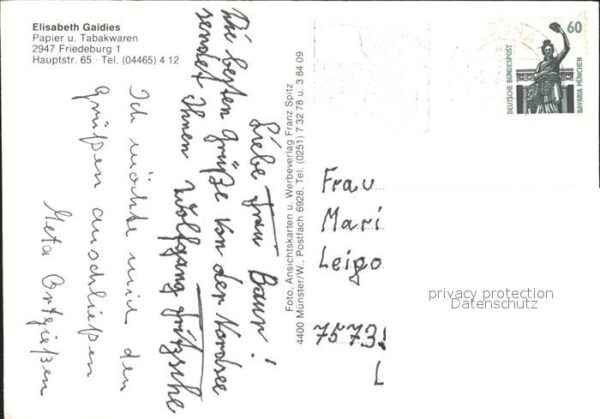 Elisabeth Gaidies
Papier u. Tabakwaren
2947 Friedeburg 1
Hauptstr. 65 · Tel. (04465) 4 12
Liebe Frau Baur!
Die besten Grüße von der Nordsee
sendet Ihnen Wolfgang Fritzsche
Ich möchte mich den
Grüßen anschließen
Meta
Foto, Ansichtskarten u. Werbeverlag Franz Spitz
4400 Münster/W., Postfach 6928, Tel. (0251) 7 32 78 u. 3 84 09
60
DEUTSCHE BUNDESPOST
BAVARIA MÜNCHEN
Frau
Mari
Leigo
7573
L
privacy protection
Datenschutz